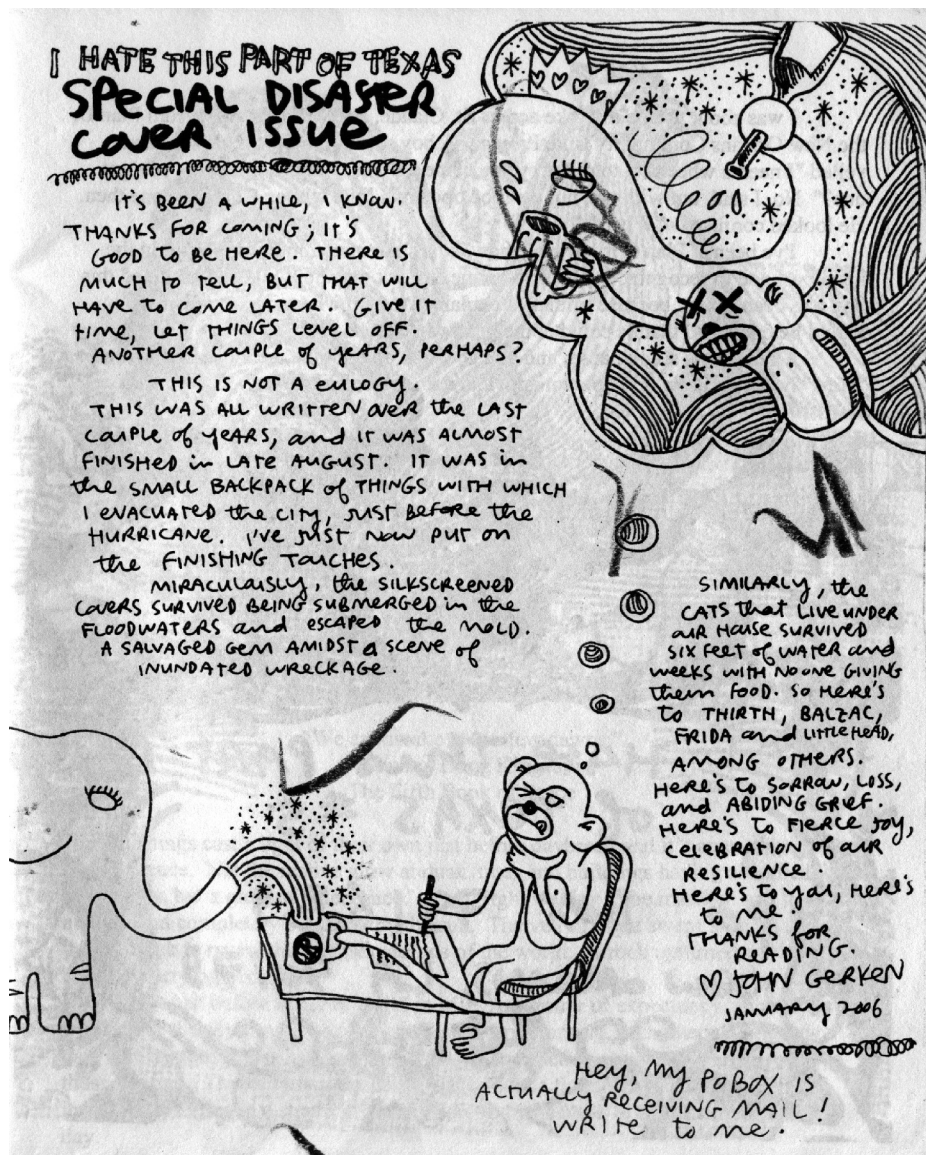 I HATE THIS PART OF TEXAS
SPECIAL DISASTER
COVER ISSUE
IT'S BEEN A WHILE, I KNOW.
THANKS FOR COMING; IT'S
GOOD TO BE HERE. THERE IS
MUCH TO TELL, BUT THAT WILL
HAVE TO COME LATER. GIVE IT
TIME, LET THINGS LEVEL OFF.
ANOTHER COUPLE OF YEARS, PERHAPS?
THIS IS NOT A EULOGY.
THIS WAS ALL WRITTEN OVER the LAST
COUPLE OF YEARS, and IT WAS ALMOST
FINISHED in LATE AUGUST. IT WAS in
the SMALL BACKPACK of THINGS WITH WHICH
I EVACUATED the CITY, JUST BEFORE the
HURRICANE. I'VE JUST NOW PUT ON
the FINISHING TOUCHES.
MIRACULOUSLY, the SILKSCREENED
COVERS SURVIVED BEING SUBMERGED in the
FLOODWATERS and ESCAPED the MOLD.
A SALVAGED GEM AMIDST a SCENE of
INUNDATED WRECKAGE.
SIMILARLY, the
CATS that LIVE UNDER
OUR HOUSE SURVIVED
SIX FEET OF WATER and
WEEKS WITH NO ONE GIVING
them FOOD. SO HERE'S
TO THIRTH, BALZAC,
FRIDA and LITTLE HEAD,
AMONG OTHERS.
HERE'S TO SORROW, LOSS,
and ABIDING GRIEF.
HERE'S TO FIERCE JOY,
CELEBRATION OF OUR
RESILIENCE.
HERE'S TO YOU, HERE'S
TO ME.
THANKS FOR
READING.
♡ JOHN GERKEN
JANUARY 2006
Hey, MY PO BOX IS
ACTUALLY RECEIVING MAIL!
WRITE TO ME.